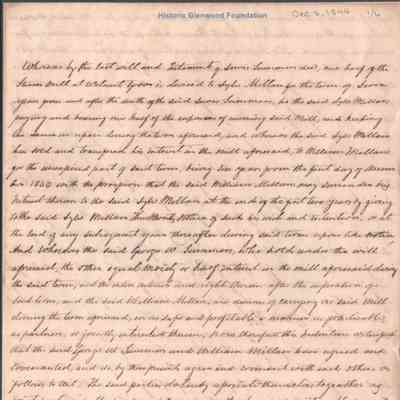 Historic Glenwood Foundation
Dec 2, 1844 1/6
Whereas by the last will and Testament of Lewis Summers decd, one half of the
Steam Mill at Walnut Grove is leased to Sylis Millan for the term of Seven
years from and after the death of the said Lewis Summers, he the said Sylis Millan
paying and bearing one half of the expenses of running said Mill, and keeping
the same in repair during the term aforesaid, and whereas the said Sylis Millan
has sold and transfered his interest in the mill aforesaid, to William Millan
for the unexpired part of said term, being six years from the first day of
1844 with the provision that the said William Millan may surrender his
interest therein to the said Sylis Millan at the end of the first two years by giving
to the said Sylis Millan months notice of such his wish and intention, or at
the end of any subsequent year thereafter during said term upon like notice
And Whereas the said George W. Summers, who holds under the will
aforesaid, the other equal moiety or half interest in the mill aforesaid during
the said term, and the entire interest and right therein after the expiration of
said term, and the said William Millan, are desirous of carrying on said Mill
during the term aforesaid, in as safe and profitable a manner as practicable
as partners, or jointly interested therein, Now therefore this Indenture witnesseth
that the said George W Summers and William Millan have agreed and
covenanted, and do by these presents agree and covenant with each other as
follows to wit. The said parties do hereby associate themselves together as